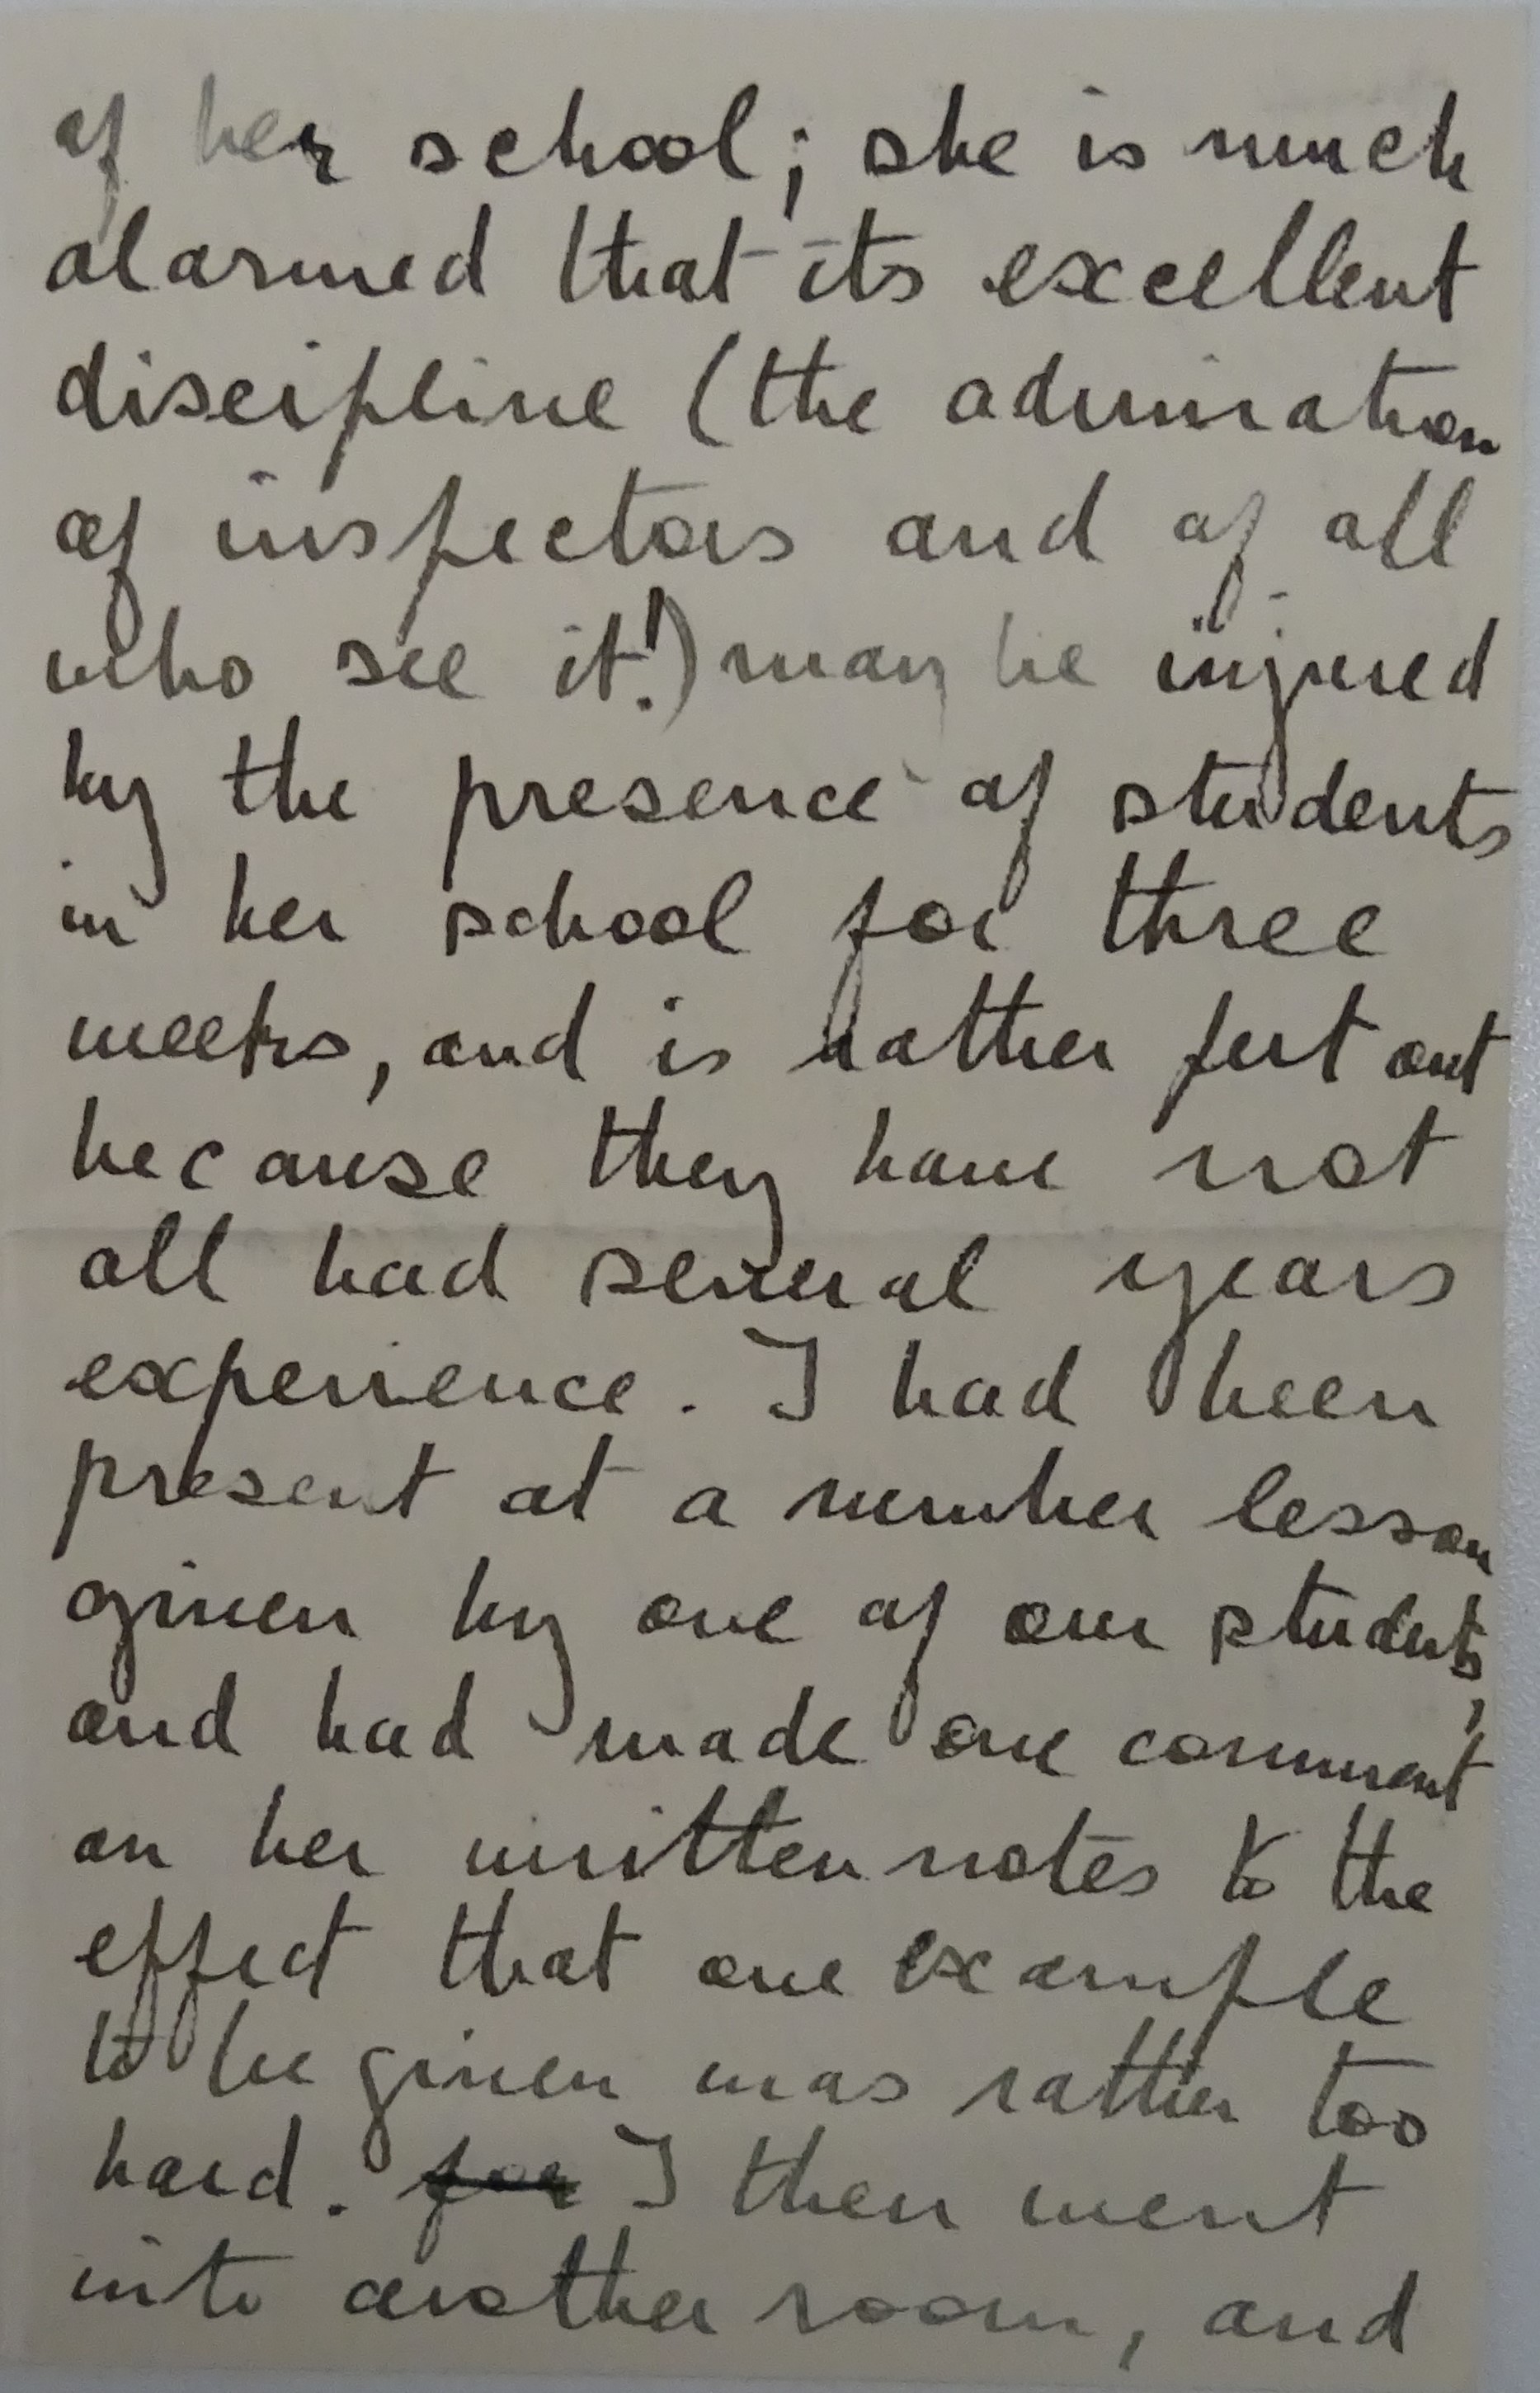 of her school; she is much
alarmed that its excellent
discipline (the admiration
of inspectors and of all
who see it!) may be injured
by the presence of students
in her school for three
weeks, and is rather put out
because they have not
all had several years
experience. I had been
present at a number lesson
given by one of our students,
and had made one comment
on her written notes to the
effect that one example
to be given was rather too
hard. for I then went
into another room, and